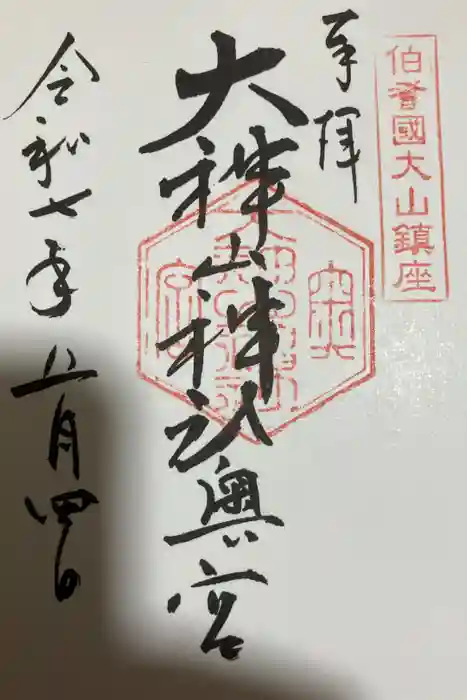 伯耆國大山鎮座
奉拝
大神山神社奥宮
令和七年五月四日